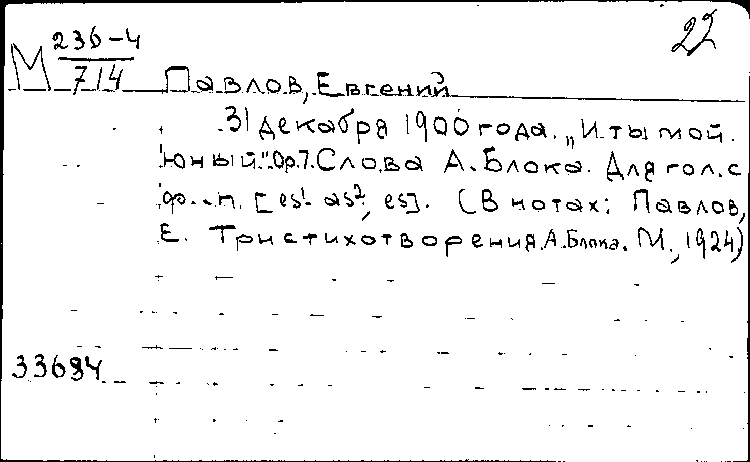 22
М 236-4
714
Павлов, Евгений
31 декабря 1900 года. „И ты мой
юный". Ор.7. Слова А. Блока. Для гол. с
ф.-п. [es¹ as², es]. (В нотах: Павлов,
Е. Три стихотворения А. Блока. М., 1924)
33684